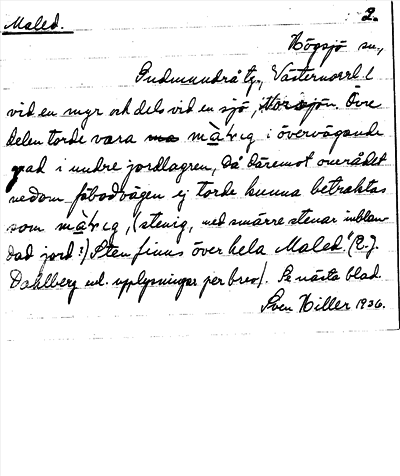 Maled. 2.
Högsjö sn,
Gudmundrå tg., Västernorrl. l
vid en myr och dels vid en sjö, Norsjön. Övre
delen torde vara ma màrig i övervägande
grad i undre jordlagren, då däremot området
nedom fäbodvägen ej torde kunna betraktas
som màrig, (stenig, med smärre stenar inblan
dad jord:) Sten finns över hela Maled." (L.J.
Dahlberg enl. upplysningar per brev). Se nästa blad.
Sven Hiller 1936.